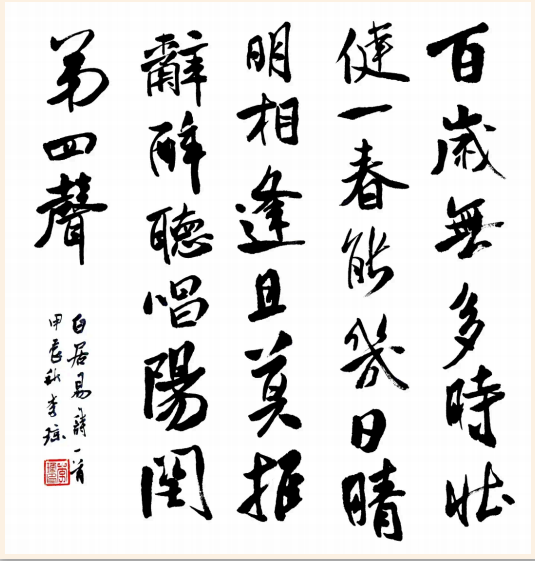 百歲無多時壯
健一春能幾日晴
明相逢且莫推
辭醉聽唱陽關
第四聲
白居易詩一首
甲辰秋李